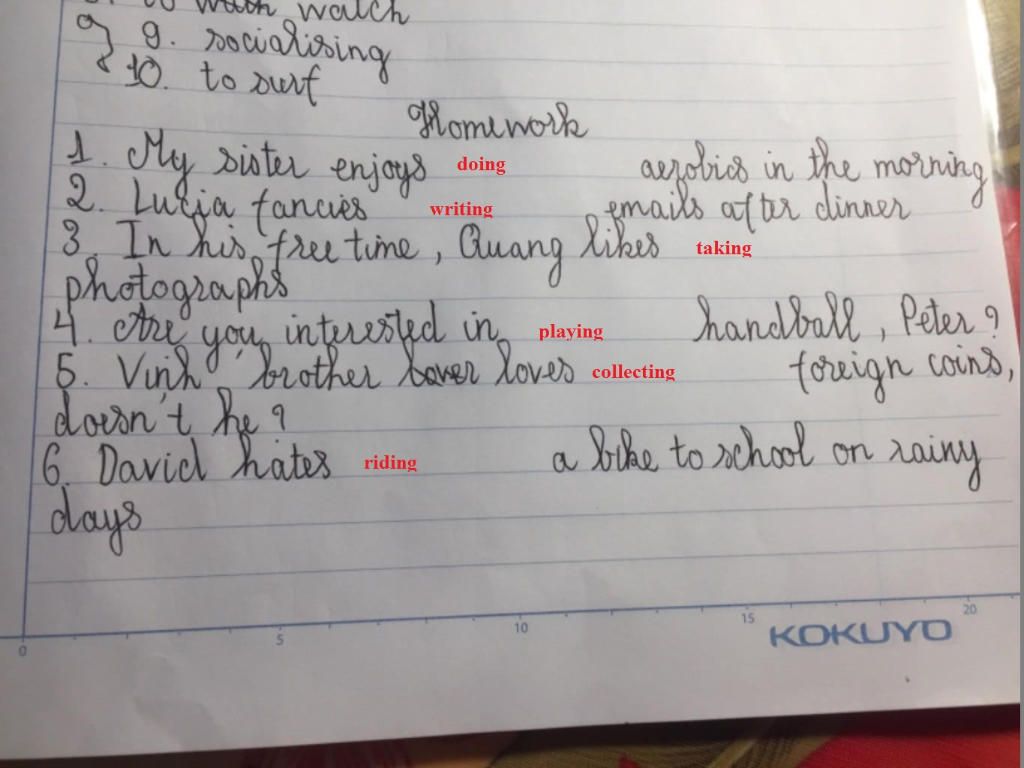 watch
9. socialising
10. to surf
Homework
1. My sister enjoys doing aerobics in the morning
2. Lucia fancies writing emails after dinner
3. In his free time, Quang likes taking
photographs
4. Are you interested in playing handball, Peter?
5. Vinh' brother loves collecting foreign coins,
doesn't he?
6. David hates riding a bike to school on rainy
days
0 5 10 15 20
KOKUYO